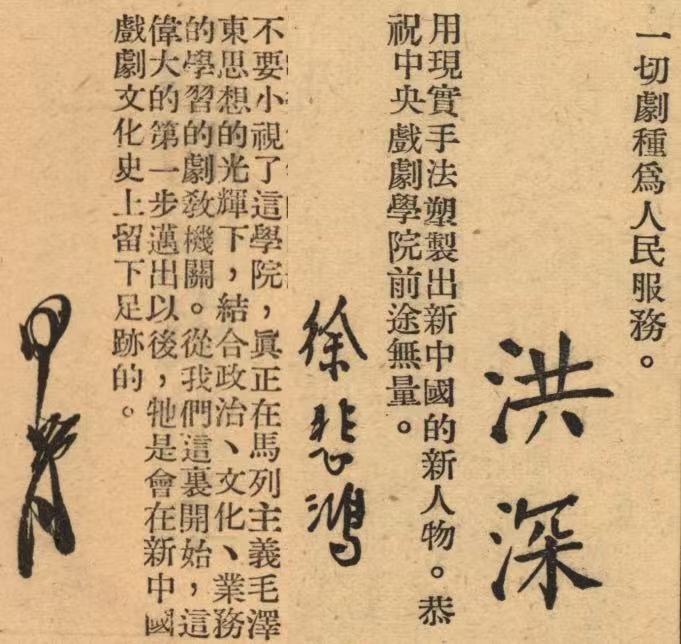 一切劇種爲人民服務。
洪深
用現實手法塑製出新中國的新人物。恭
祝中央戲劇學院前途無量。
徐悲鴻
不要小視了這學院，眞正在馬列主義毛澤
東思想的光輝下，結合政治、文化、業務
的學習的劇敎機關。從我們這裏開始，這
偉大的第一步邁出以後，牠是會在新中國
戲劇文化史上留下足跡的。